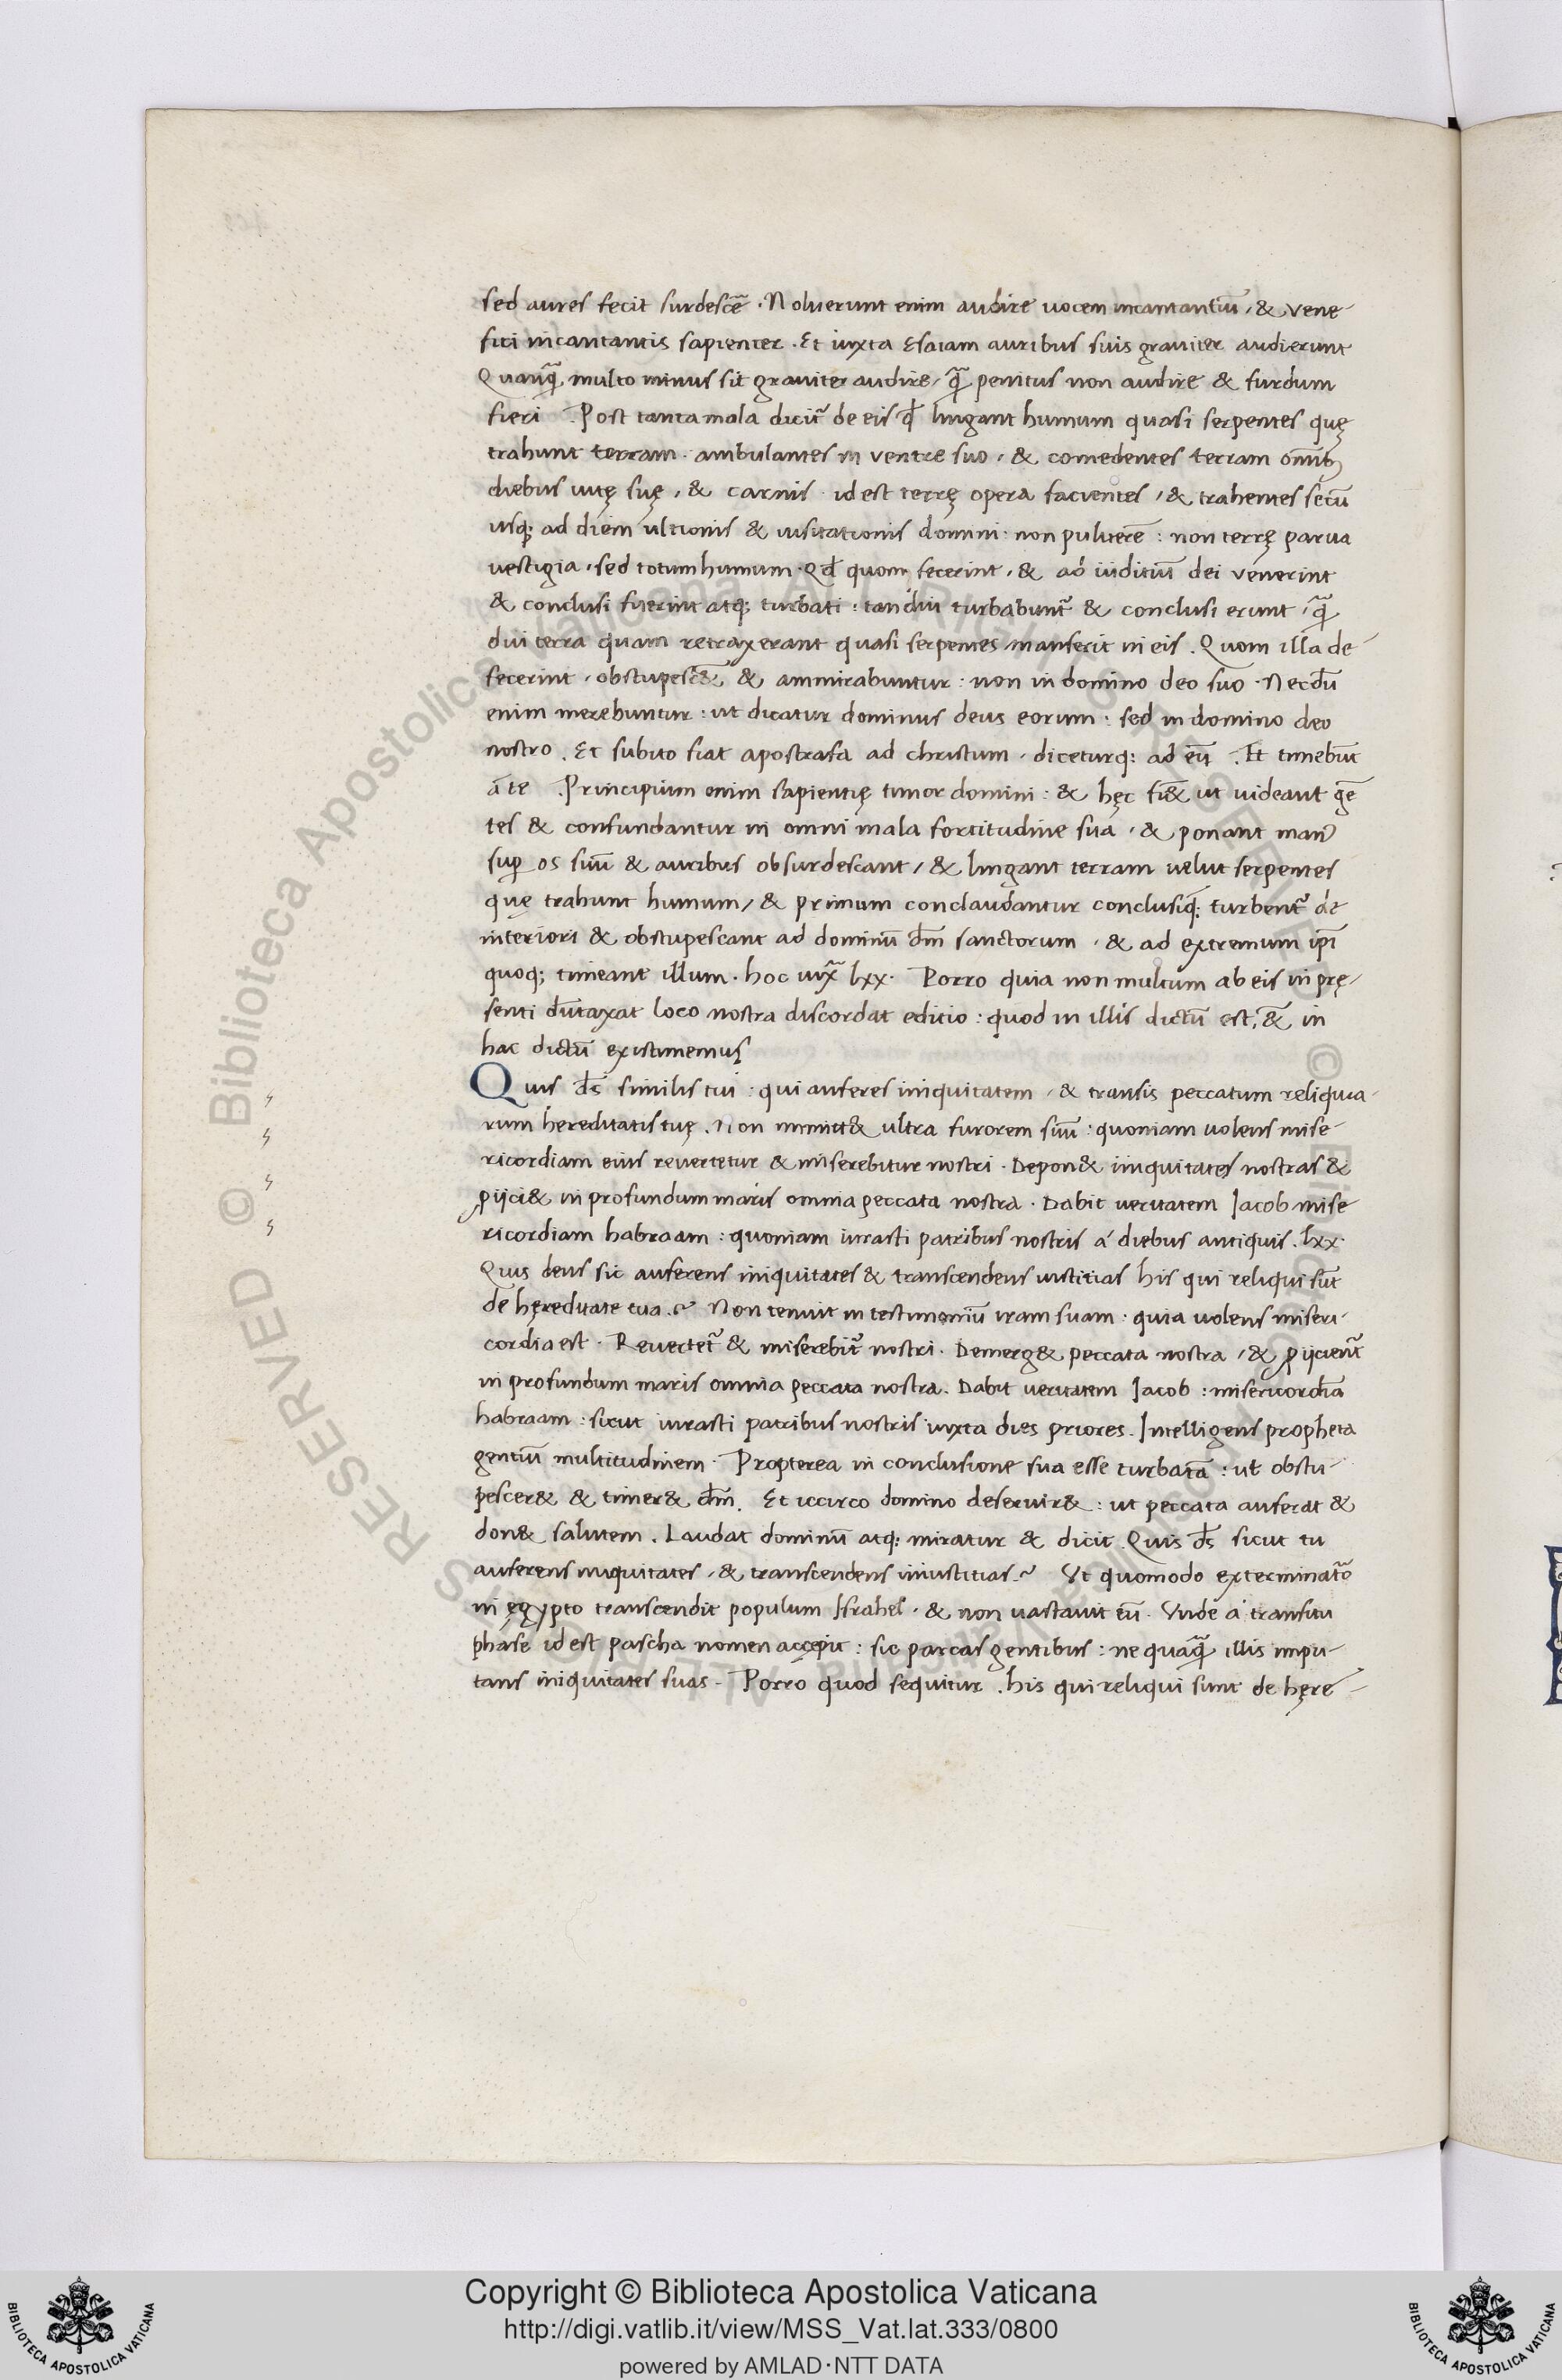 sed aures fecit surdescē̃. Noluerunt enim audire uocem incantantiū, & vene-
fici incantantis sapienter. Et iuxta Esaiam auribus suis grauiter audierunt
Quanq̃ multo minus sit grauiter audire, q̃ penitus non audire & surdum
fieri. Post tanta mala dicit᷑ de eis qđ lingant humum quasi serpentes quę
trahunt terram. ambulantes in ventre suo, & comedentes terram omīb;
diebus uitę suę, & carnis. id est terrę opera facientes, & trahentes secū
usq; ad diem ultionis & uisitationis domini: non puluerē: non terrę parua
uestigia, sed totum humum. Qđ quom fecerint, & ad iuditiū dei venerint
& conclusi fuerint atq; turbati: tandiu turbabunt᷑ & conclusi erunt, q̃
diu terra quam retraxerant quasi serpentes manserit in eis. Quom illa de-
fecerint, obstupesc& & ammirabuntur: non in domino deo suo. Necdū
enim merebuntur: ut dicatur dominus deus eorum: sed in domino deo
nostro. Et subito fiat apostrafa ad christum, diceturq: ad eū. Et timebūt
á te. Principium enim sapientię timor domini: & hęc fi& ut uideant gē
tes & confundantur in omni mala fortitudine sua, & ponant manꝰ
sup os suū & auribus obsurdescant, & lingant terram uelut serpentes
quę trahunt humum, & primum conclaudantur conclusiq; turbent᷑ de
interiori & obstupescant ad dominū dm̄ sanctorum, & ad extremum ip̄i
quoq; timeant illum. hoc iux̃ lxx. Porro quia non multum ab eis in prę-
senti dūtaxat loco nostra discordat editio: quod in illis dictū est, & in
hac dictū existimemus
Quis ds̄ similis tui: qui aufères iniquitatem, & transis peccatum reliquia-
rum hereditatis tuę. Non inmitt& ultra furorem suū: quoniam uolens mise-
ricordiam eius reuertetur & miserebitur nostri. Depon& iniquitates nostras &
ꝓijci& in profundum maris omnia peccata nostra. Dabit ueritatem Jacob mise
ricordiam habraam: quoniam iurasti patribus nostris á diebus antiquis. lxx.
Quis deus sic auferens iniquitates & transcendens iustitias his qui reliqui sūt
de hęreditate tua.? Non tenuit in testimoniū iram suam: quia uolens miseri-
cordia est. Reuertet᷑ & miserebit᷑ nostri. Demerg& peccata nostra, & ꝓijcient᷑
in profundum maris omnia peccata nostra. Dabit ueritatem Jacob: misericordiā
habraam: sicut iurasti patribus nostris iuxta dies priores. Intelligens propheta
gentiū multitudinem. Propterea in conclusione sua esse turbatā: ut obstu-
pescer& & timer& dm̄. Et iccirco domino deseruir&: ut peccata auferat &
don& salutem. Laudat dominū atq: miratur & dicit. Quis ds̄ sicut tu
auferens iniquitates, & transcendens iniustitias.? Ut quomodo exterminator̃
in ęgypto transcendit populum Israhel, & non uastauit eū. Unde á transitu
phase id est pascha nomen accepit: sic parcas gentibus: ne quaq̃ illis impu-
tans iniquitates suas. Porro quod sequitur. his qui reliqui sunt de hęre-
Copyright © Biblioteca Apostolica Vaticana
http://digi.vatlib.it/view/MSS_Vat.lat.333/0800
powered by AMLAD·NTT DATA